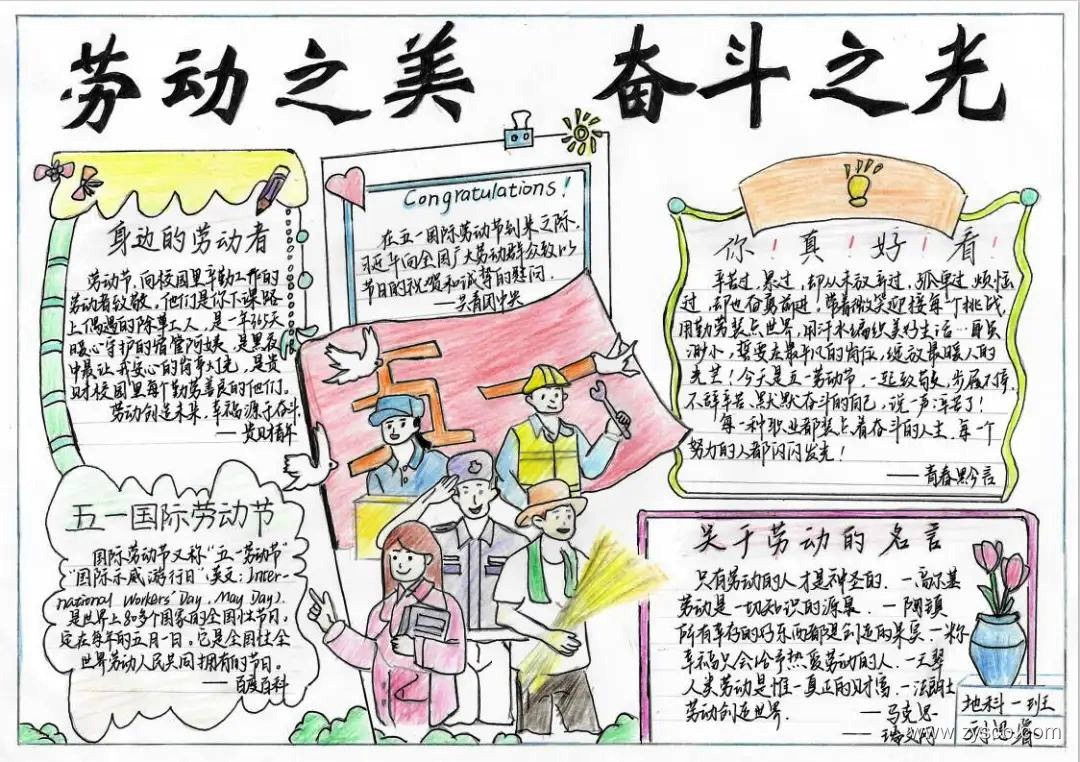 劳动之美 奋斗之光
身边的劳动者
劳动节,向校园里辛勤工作的
劳动者致敬,他们是你下课路
上偶遇的除草工人,是一年365天
暖心守护的宿管阿姨,是黑夜
中最让我安心的
财校园里每个勤劳善良的他们。
劳动创造未来,幸福源于奋斗。
五一国际劳动节
国际劳动节又称“五一劳动节”
“国际示威游行日”(英文:Inter-
national Workers' Day, May Day).
是世界上80多个国家的全国性节日,
定在每年的五月一日。它是全国性全
世界劳动人民共同拥有的节日。
——百度百科
Congratulations!
在五一国际劳动节到来之际,
向全国广大劳动群众致以
节日的祝贺和诚挚的慰问.
——共青团中央
五一
你!真!好!看!
辛苦过,累过,却从未放弃过,孤单过,烦恼
过,却也奋勇前进,带着微笑迎接每个挑战,
用勤劳装点世界,用汗水编织美好生活…再虽
渺小,誓要在最平凡的岗位,绽放最暖人的
光芒!今天是五一劳动节,一起致敬,步履不停,
不辞辛苦、默默奋斗的自己,说一声辛苦了!
每一种职业都装点着奋斗的人生,每一个
努力的人都闪闪发光!
——青春黔言
关于劳动的名言
只有劳动的人才是神圣的.一高尔基
劳动是一切知识的源泉.一陶铸
所有幸存的好东西都是创造的果实一米尔
幸福只会给予热爱劳动的人.一王翠
人类劳动是惟一真正的财富.一法朗士
劳动创造世界.——马克思
——瑞文网
地科一班